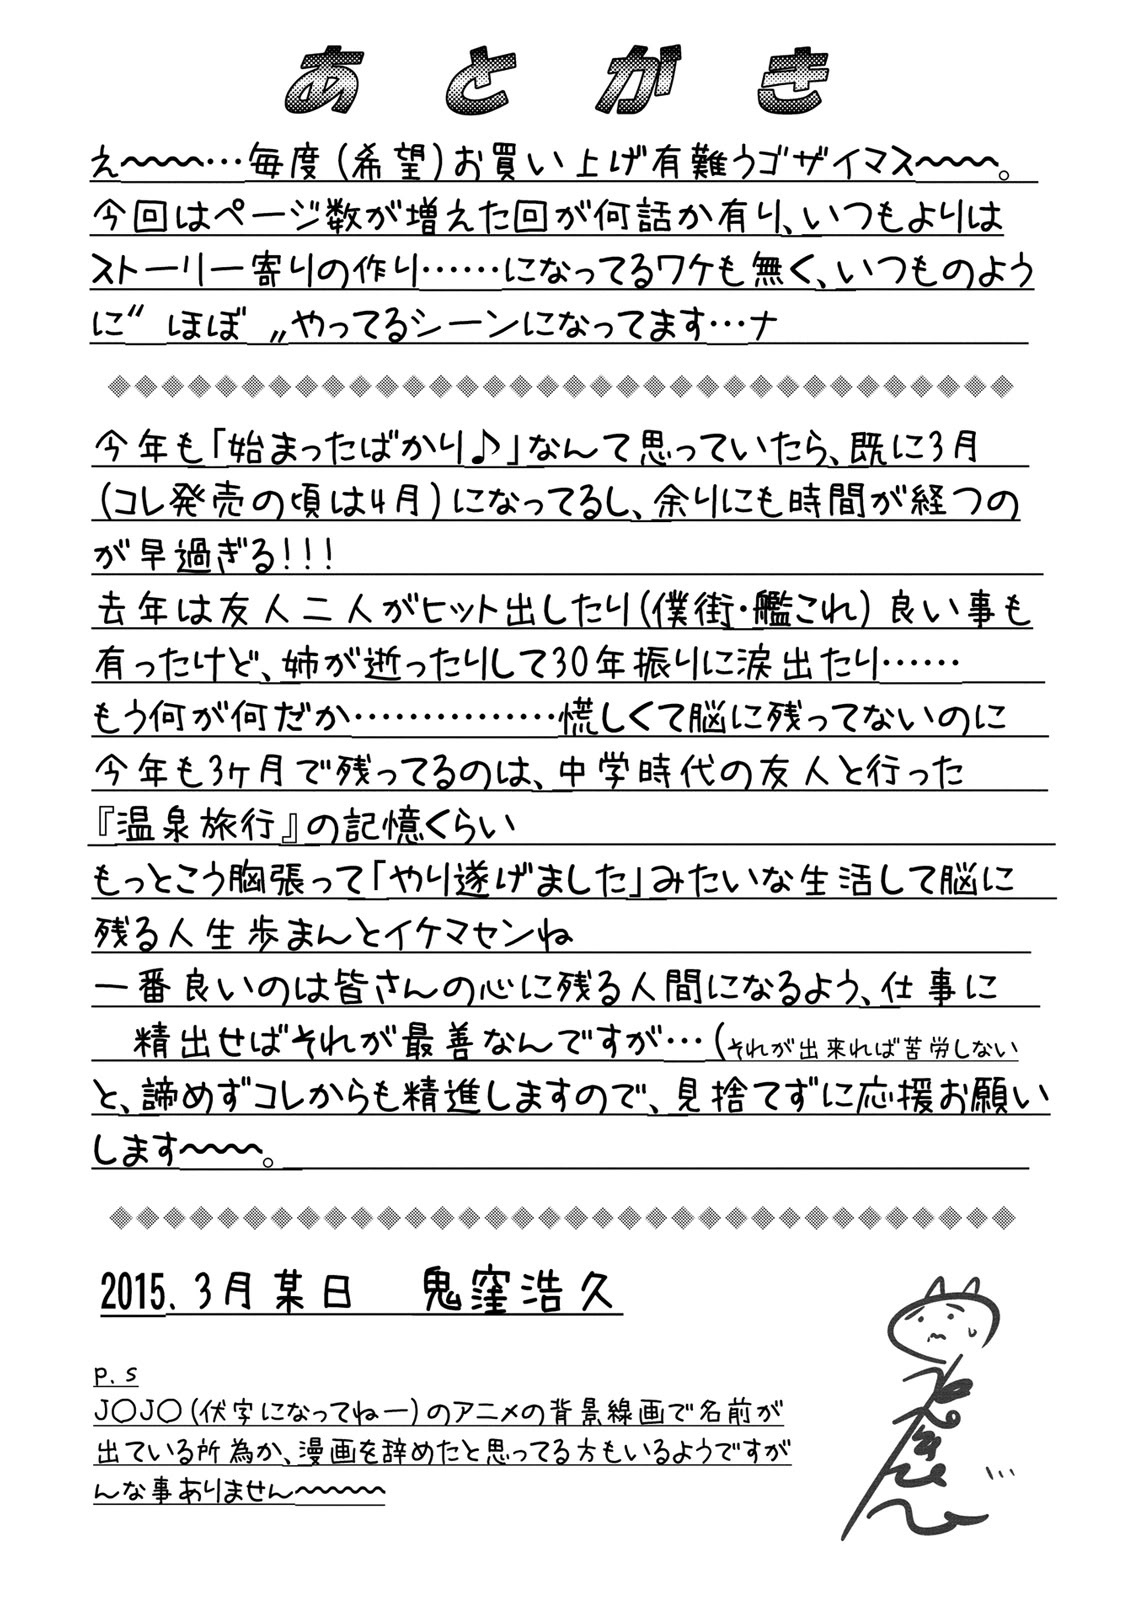 あとがき
え〜〜〜…毎度(希望)お買い上げ有難うゴザイマス〜〜〜。
今回はページ数が増えた回が何話か有り、いつもよりは
ストーリー寄りの作り……になってるワケも無く、いつものよう
に〝ほぼ〟やってるシーンになってます…ナ
今年も「始まったばかり♪」なんて思っていたら、既に3月
(コレ発売の頃は4月)になってるし、余りにも時間が経つの
が早過ぎる!!!
去年は友人二人がヒット出したり(僕街・艦これ)良い事も
有ったけど、姉が逝ったりして30年振りに涙出たり……
もう何が何だか……………慌しくて脳に残ってないのに
今年も3ヶ月で残ってるのは、中学時代の友人と行った
『温泉旅行』の記憶くらい
もっとこう胸張って「やり遂げました」みたいな生活して脳に
残る人生歩まんとイケマセンね
一番良いのは皆さんの心に残る人間になるよう、仕事に
精出せばそれが最善なんですが…(それが出来れば苦労しない
と、諦めずコレからも精進しますので、見捨てずに応援お願い
します〜〜〜。
2015.3月某日 鬼窪浩久
p.s
J○J○(伏字になってねー)のアニメの背景線画で名前が
出ている所為か、漫画を辞めたと思ってる方もいるようですが
んな事ありません〜〜〜〜